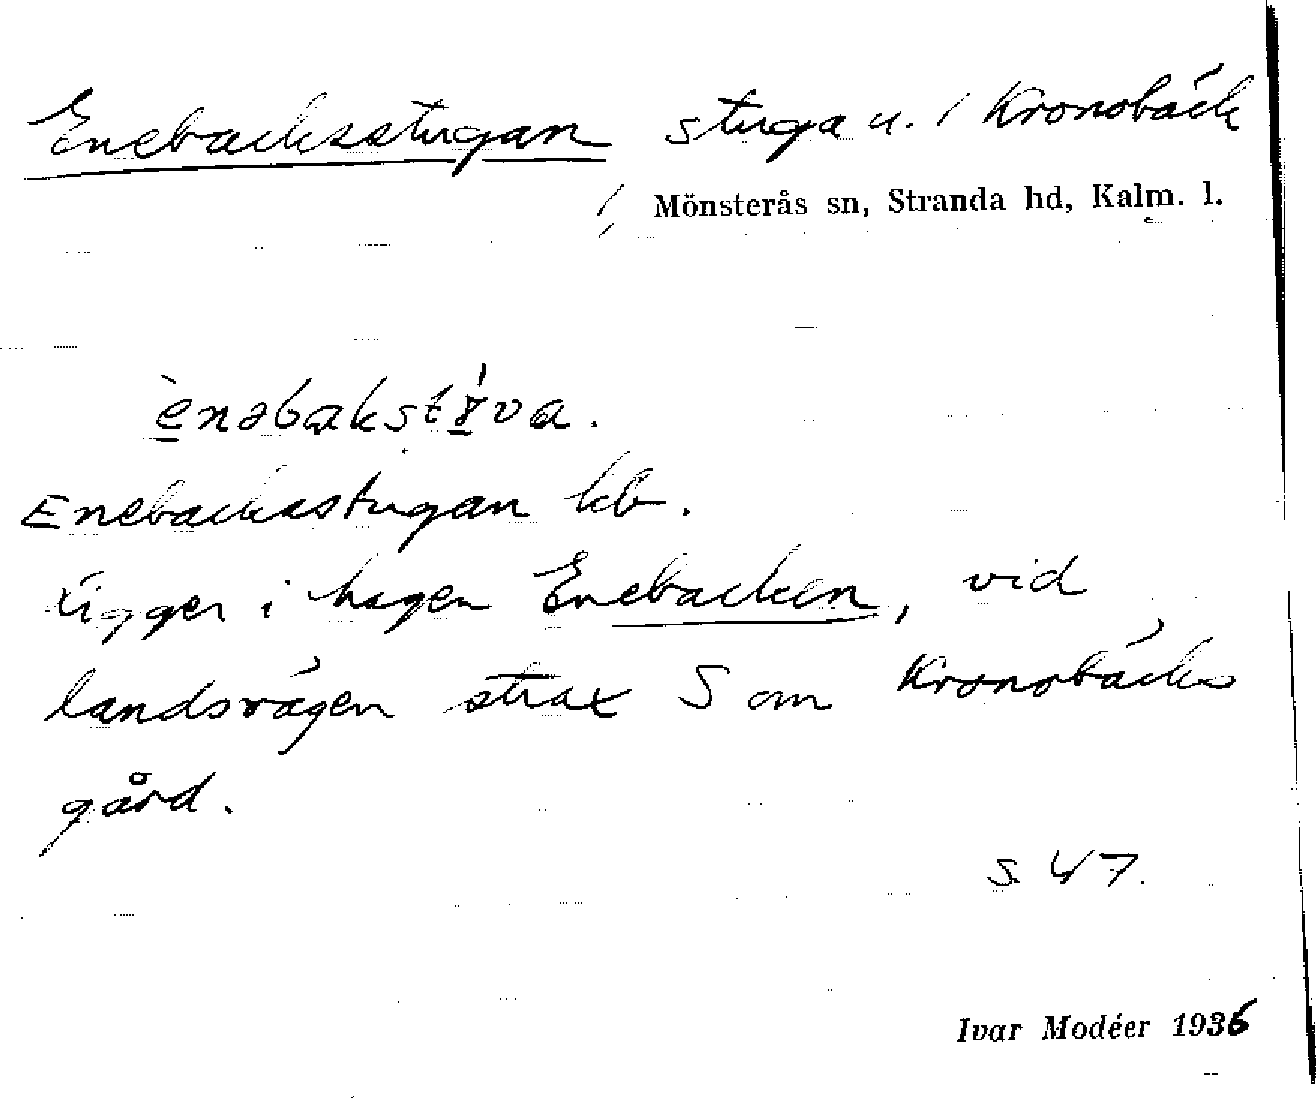 Enebacksstugan stuga u. / Kronobäck
Mönsterås sn, Stranda hd, Kalm. l.
ènəbakstɤ́va.
Enebacksstugan kb.
Ligger i hagen Enebacken, vid
landsvägen strax S om Kronobäcks
gård.
S. 47.
Ivar Modéer 1936